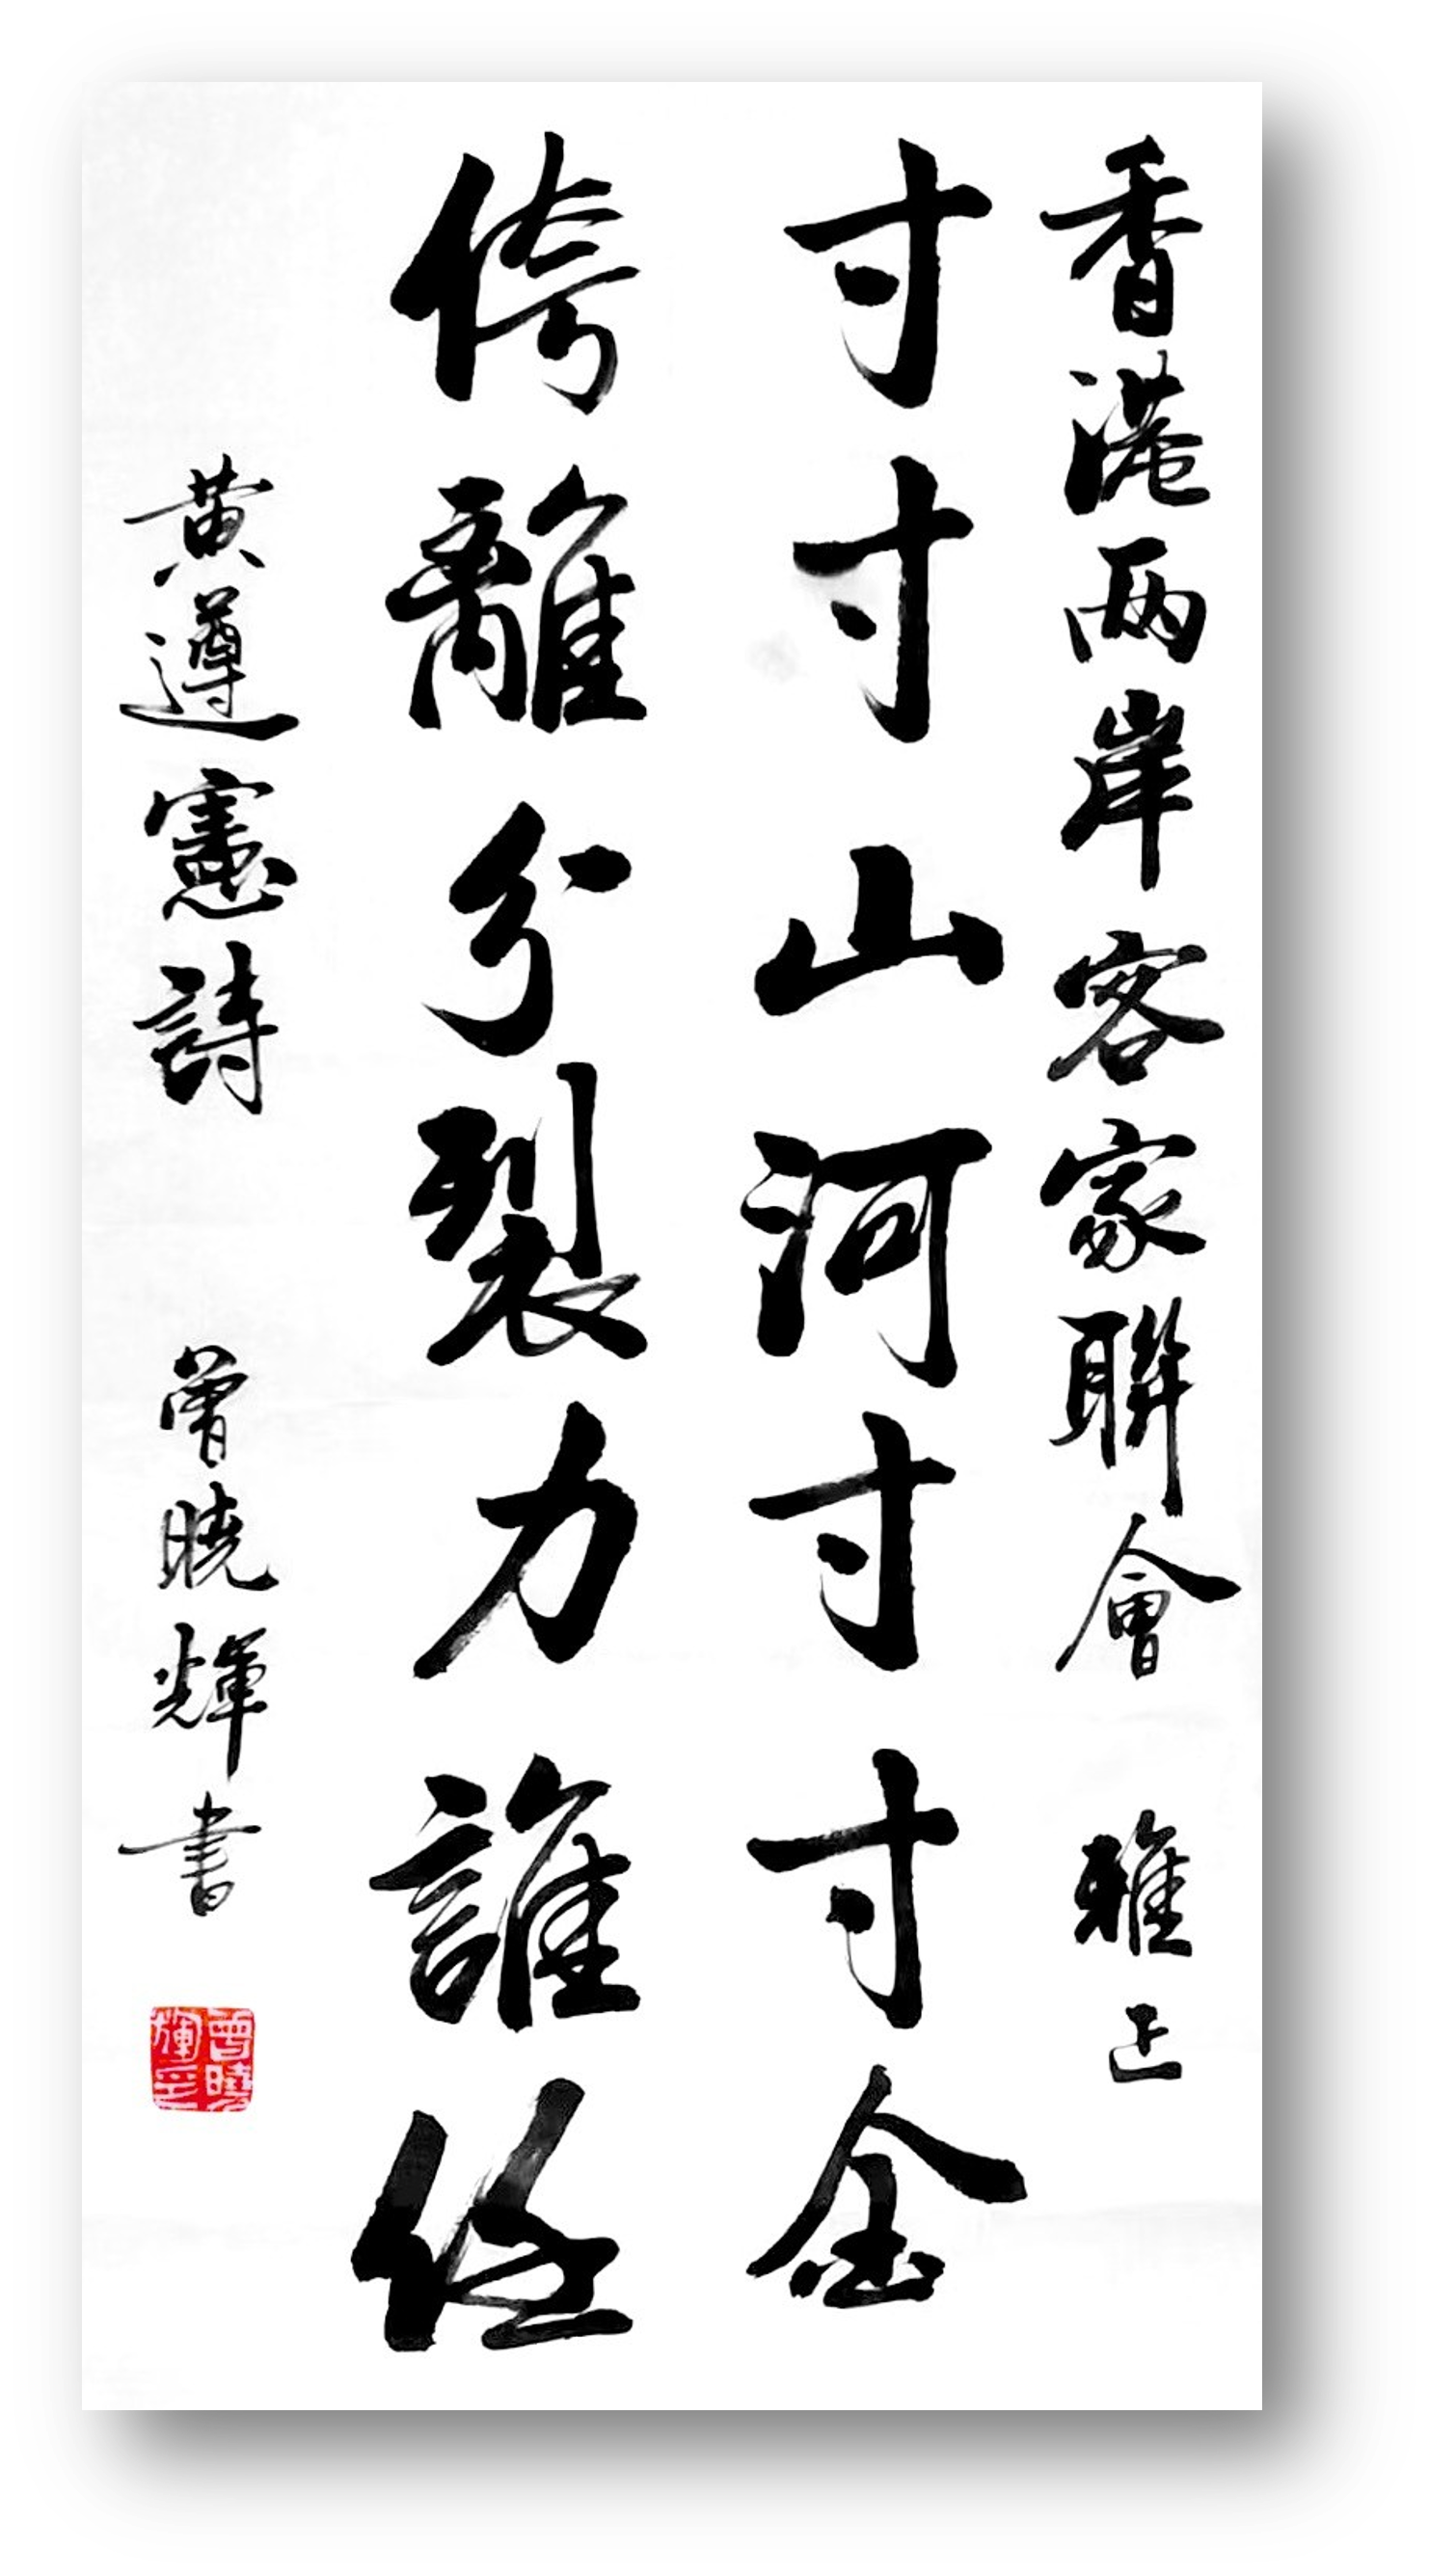 香港两岸客家聯會 雅正
寸寸山河寸寸金
侉離分裂力誰任
黄遵憲詩 曾曉輝書
曾曉輝印